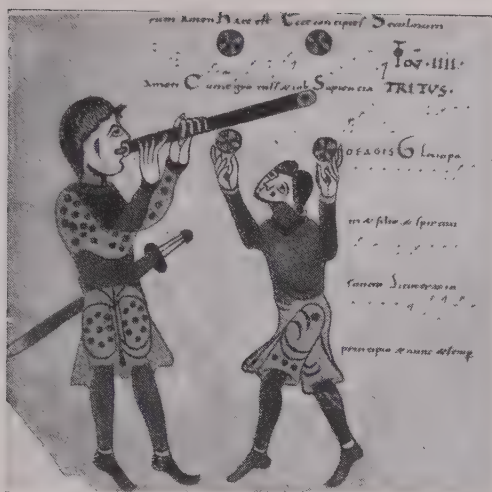 eum Amen hAec est Ecce concipies Seculorum
Toꝰ · IIII ·
Amen Cum ego Sapiencia TRITVS ·
Gloria pa
tri & filio & spiritui
sancto Sicut erat in
principio & nunc & semp